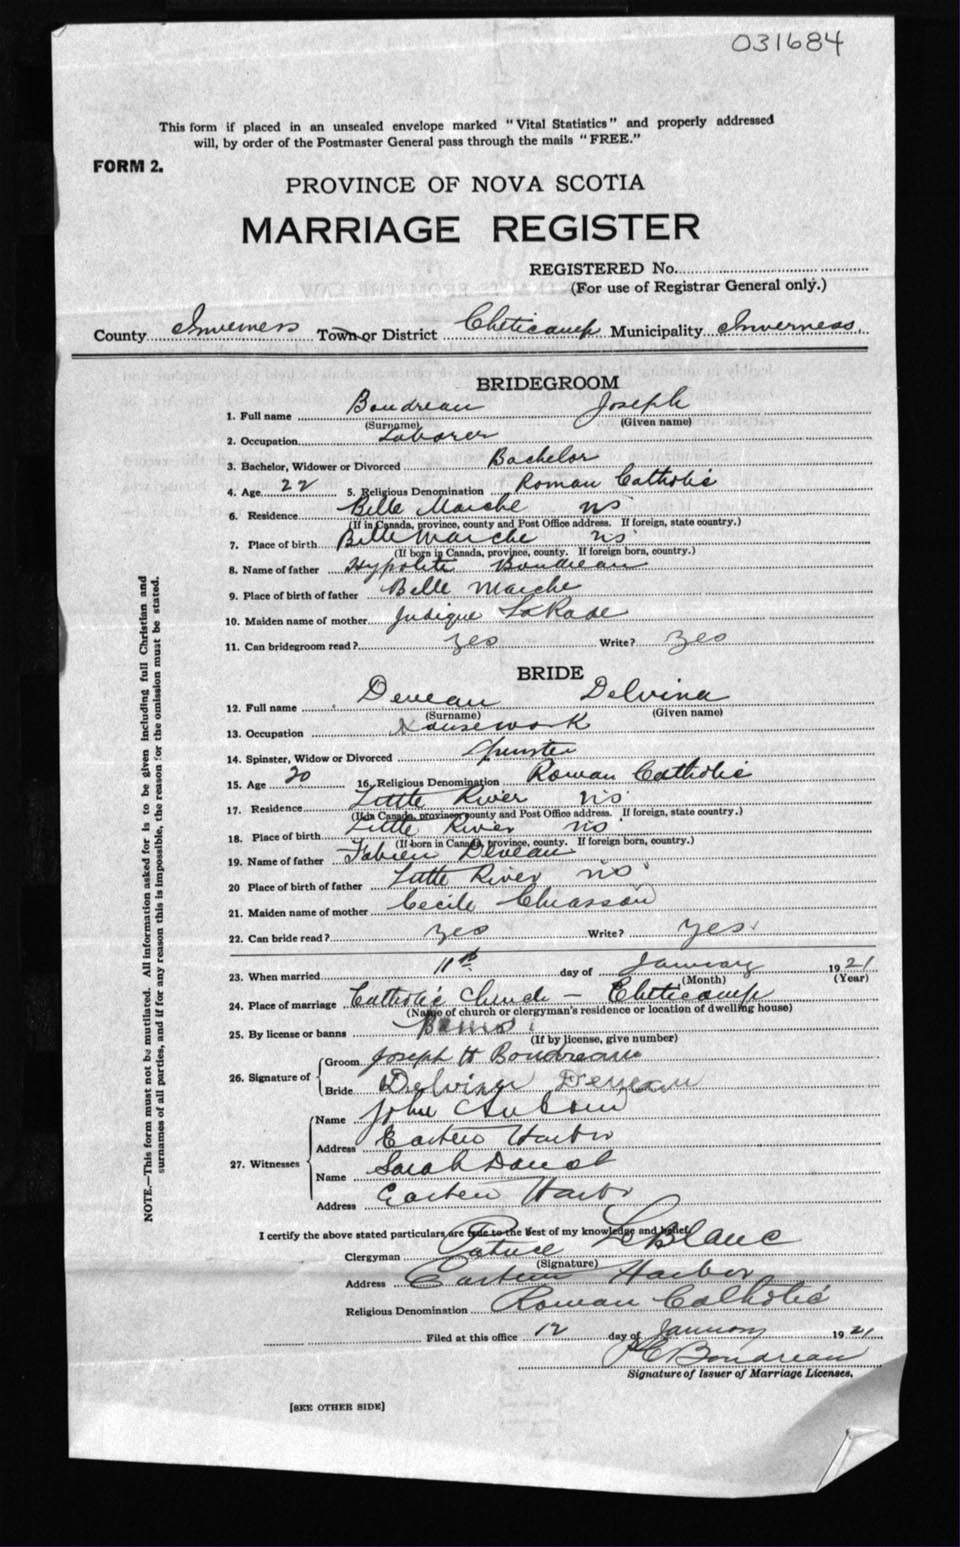 031684
This form if placed in an unsealed envelope marked "Vital Statistics" and properly addressed
will, by order of the Postmaster General pass through the mails "FREE."
FORM 2.
PROVINCE OF NOVA SCOTIA
MARRIAGE REGISTER
REGISTERED No.
(For use of Registrar General only.)
County Inverness Town or District Cheticamp Municipality Inverness
BRIDEGROOM
1. Full name Boudreau Joseph
(Surname) (Given name)
2. Occupation Laborer
3. Bachelor, Widower or Divorced Bachelor
4. Age 22 5. Religious Denomination Roman Catholic
6. Residence Belle Marche NS
(If in Canada, province, county and Post Office address. If foreign, state country.)
7. Place of birth Belle Marche NS
(If born in Canada, province, county. If foreign born, country.)
8. Name of father Hypolite Boudreau
9. Place of birth of father Belle Marche
10. Maiden name of mother Judique LaRade
11. Can bridegroom read? yes Write? yes
BRIDE
12. Full name Deveau Delvina
(Surname) (Given name)
13. Occupation Housework
14. Spinster, Widow or Divorced Spinster
15. Age 20 16. Religious Denomination Roman Catholic
17. Residence Little River NS
(If in Canada, province, county and Post Office address. If foreign, state country.)
18. Place of birth Little River NS
(If born in Canada, province, county. If foreign born, country.)
19. Name of father Fabien Deveau
20 Place of birth of father Little River NS
21. Maiden name of mother Cecile Chiasson
22. Can bride read? yes Write? yes
23. When married 11th day of January 1921
(Month) (Year)
24. Place of marriage Catholic Church – Cheticamp
(Name of church or clergyman's residence or location of dwelling house)
25. By license or banns Banns
(If by license, give number)
26. Signature of Groom Joseph H Boudreau
Bride Delvina Deveau
27. Witnesses Name John
Address Eastern Harbor
Name Sarah
Address Eastern Harbor
I certify the above stated particulars are true to the best of my knowledge and belief.
Clergyman LeBlanc
(Signature)
Address Eastern Harbor
Religious Denomination Roman Catholic
Filed at this office 12 day of January 1921
Boudreau
Signature of Issuer of Marriage Licenses.
[SEE OTHER SIDE]
NOTE.—This form must not be mutilated. All information asked for is to be given including full Christian and
surnames of all parties, and if for any reason this is impossible, the reason for the omission must be stated.